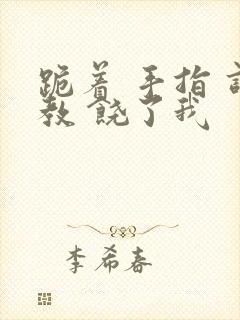 跪着 手指
教 饶了我
李希春